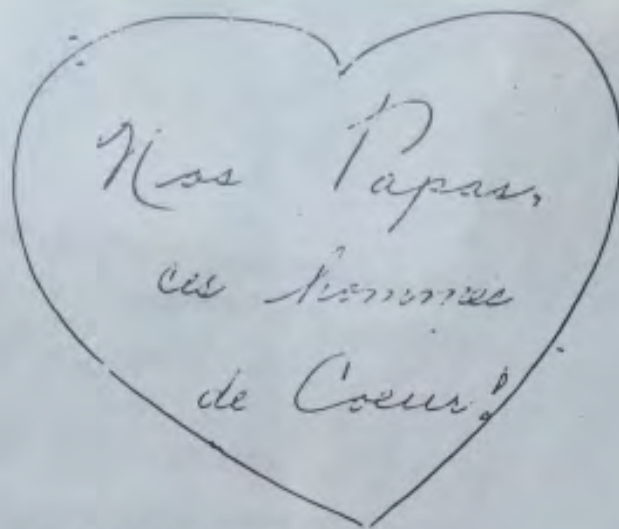 Nos Papas,
ces hommes
de Coeur!